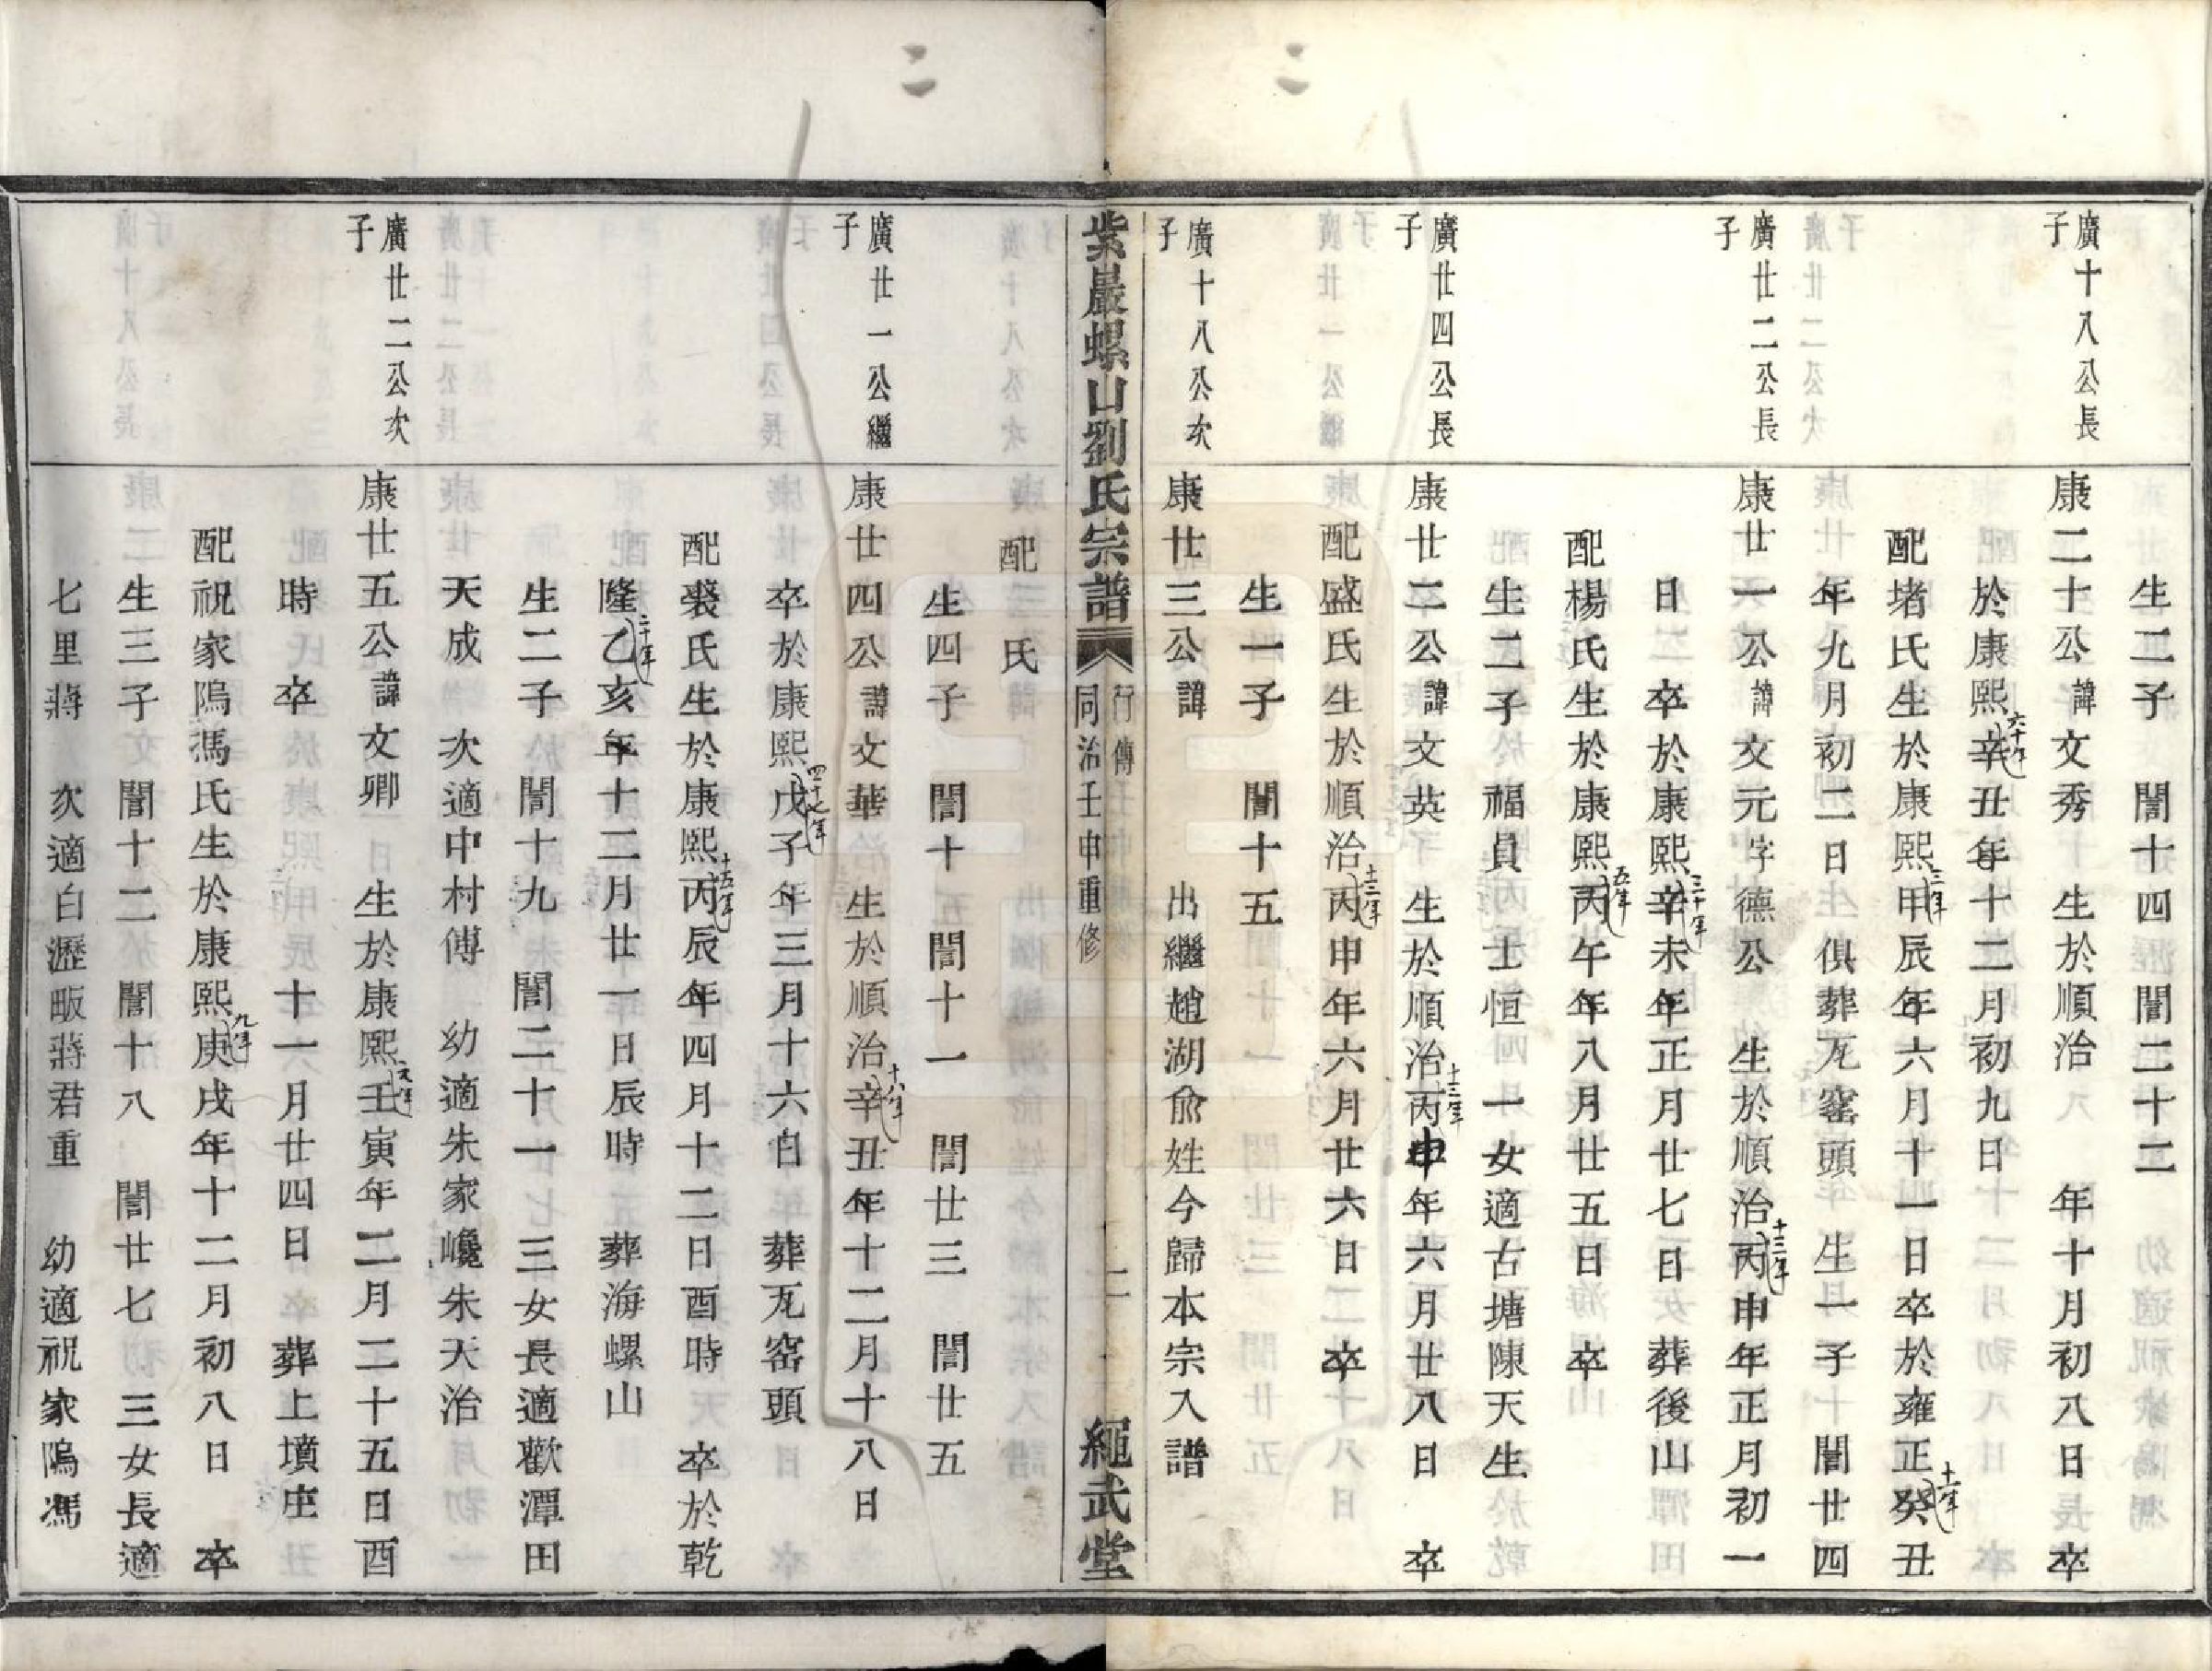 二
生二子　誾十四　誾二十二
廣十八公長子
康二十公諱文秀　生於順治　年十月初八日　卒
於康熙辛丑年十二月初九日
六十年
配堵氏生於康熙甲辰年六月十一日卒於雍正癸丑
三年
十一年
年九月初二日　俱葬瓦窑頭　生一子　誾廿四
廣廿二公長子
康廿一公諱文元字德公　生於順治丙申年正月初一
十三年
日　卒於康熙辛未年正月廿七日　葬後山
三十年
配楊氏生於康熙丙午年八月廿五日　卒
五年
生二子　福員　士恒　一女適古塘陳天生
廣廿四公長子
康廿二公諱文英　生於順治丙申年六月廿八日　卒
十三年
配盛氏生於順治丙申年六月廿六日　卒
十三年
生一子　誾十五
廣十八公次子
康廿三公諱　出繼趙湖俞姓今歸本宗入譜
紫巖螺山劉氏宗譜　行傳　同治壬申重修　二　繩武堂
二
配　氏
生四子　誾十五　誾十一　誾廿三　誾廿五
廣廿一公繼子
康廿四公諱文華　生於順治辛丑年十二月十八日
十八年
卒於康熙戊子年三月十六日　葬瓦窑頭
四十七年
配裘氏生於康熙丙辰年四月十二日酉時　卒於乾
十五年
隆乙亥年十二月廿一日辰時　葬海螺山
二十年
生二子　誾十九　誾二十一　三女長適歡潭田
天成　次適中村傅　幼適朱家巉朱天治
廣廿二公次子
康廿五公諱文卿　生於康熙壬寅年二月二十五日酉
元年
時卒　十一月廿四日　葬上墳庄
配祝家隖馮氏生於康熙庚戌年十二月初八日　卒
九年
生三子　誾十二　誾十八　誾廿七　三女長適
七里蔣　次適白瀝畈蔣君重　幼適祝家隖馮